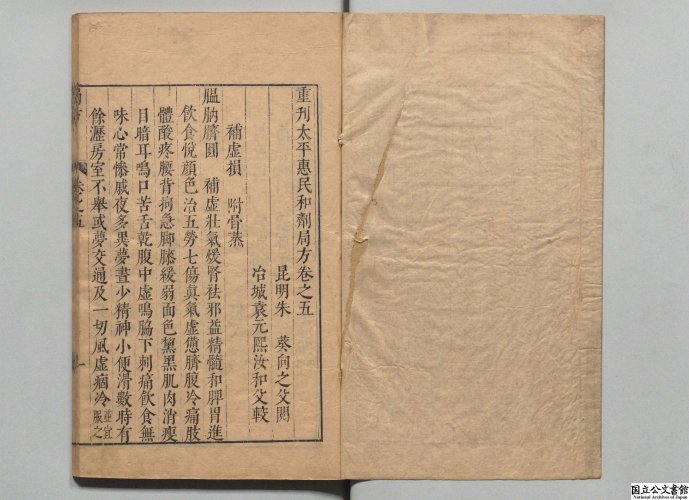 重刋太平惠民和劑局方卷之五
昆明朱 葵向之父閱
冶城袁元熙汝和父較
補虛損 附骨蒸
膃肭臍圓 補虛壯氣煖腎祛邪益精髓和脾胃進
飲食悅顔色治五勞七傷眞氣虛憊臍腹冷痛肢
體酸疼腰背拘急脚膝緩弱面色黧黑肌肉消瘦
目暗耳鳴口苦舌乾腹中虛鳴脇下刺痛飲食無
味心常慘戚夜多異夢晝少精神小便滑數時有
餘瀝房室不舉或夢交通及一切風虛痼冷並宜服之
局方
卷之五
一
国立公文書館
National Archives of Japan